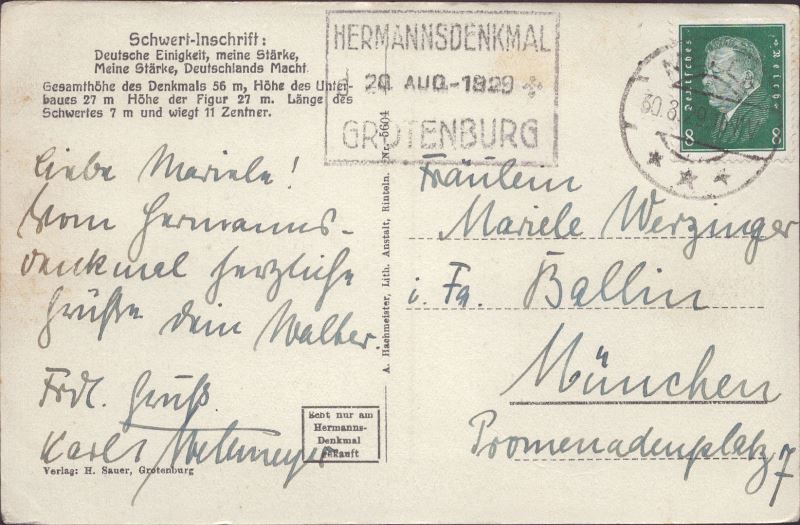 Schwert-Inschrift:
Deutsche Einigkeit, meine Stärke,
Meine Stärke, Deutschlands Macht
Gesamthöhe des Denkmals 56 m, Höhe des Unter-
baues 27 m Höhe der Figur 27 m. Länge des
Schwertes 7 m und wiegt 11 Zentner.
HERMANNSDENKMAL
AUG.-1929
GROTENBURG
Deutsches Reich
8 8
30.8.
Liebe Mariele!
Vom Hermanns-
denkmal herzliche
Grüße dein Walter.
Frdl. Gruß.
Karl
Verlag: H. Sauer, Grotenburg
A. Hachmeister, Lith. Anstalt, Rinteln. Nr. 5604
Echt nur am
Hermanns-
Denkmal
gekauft
Fräulein
Mariele Werzinger
i. Fa. Ballin
München
Promenadenplatz 7